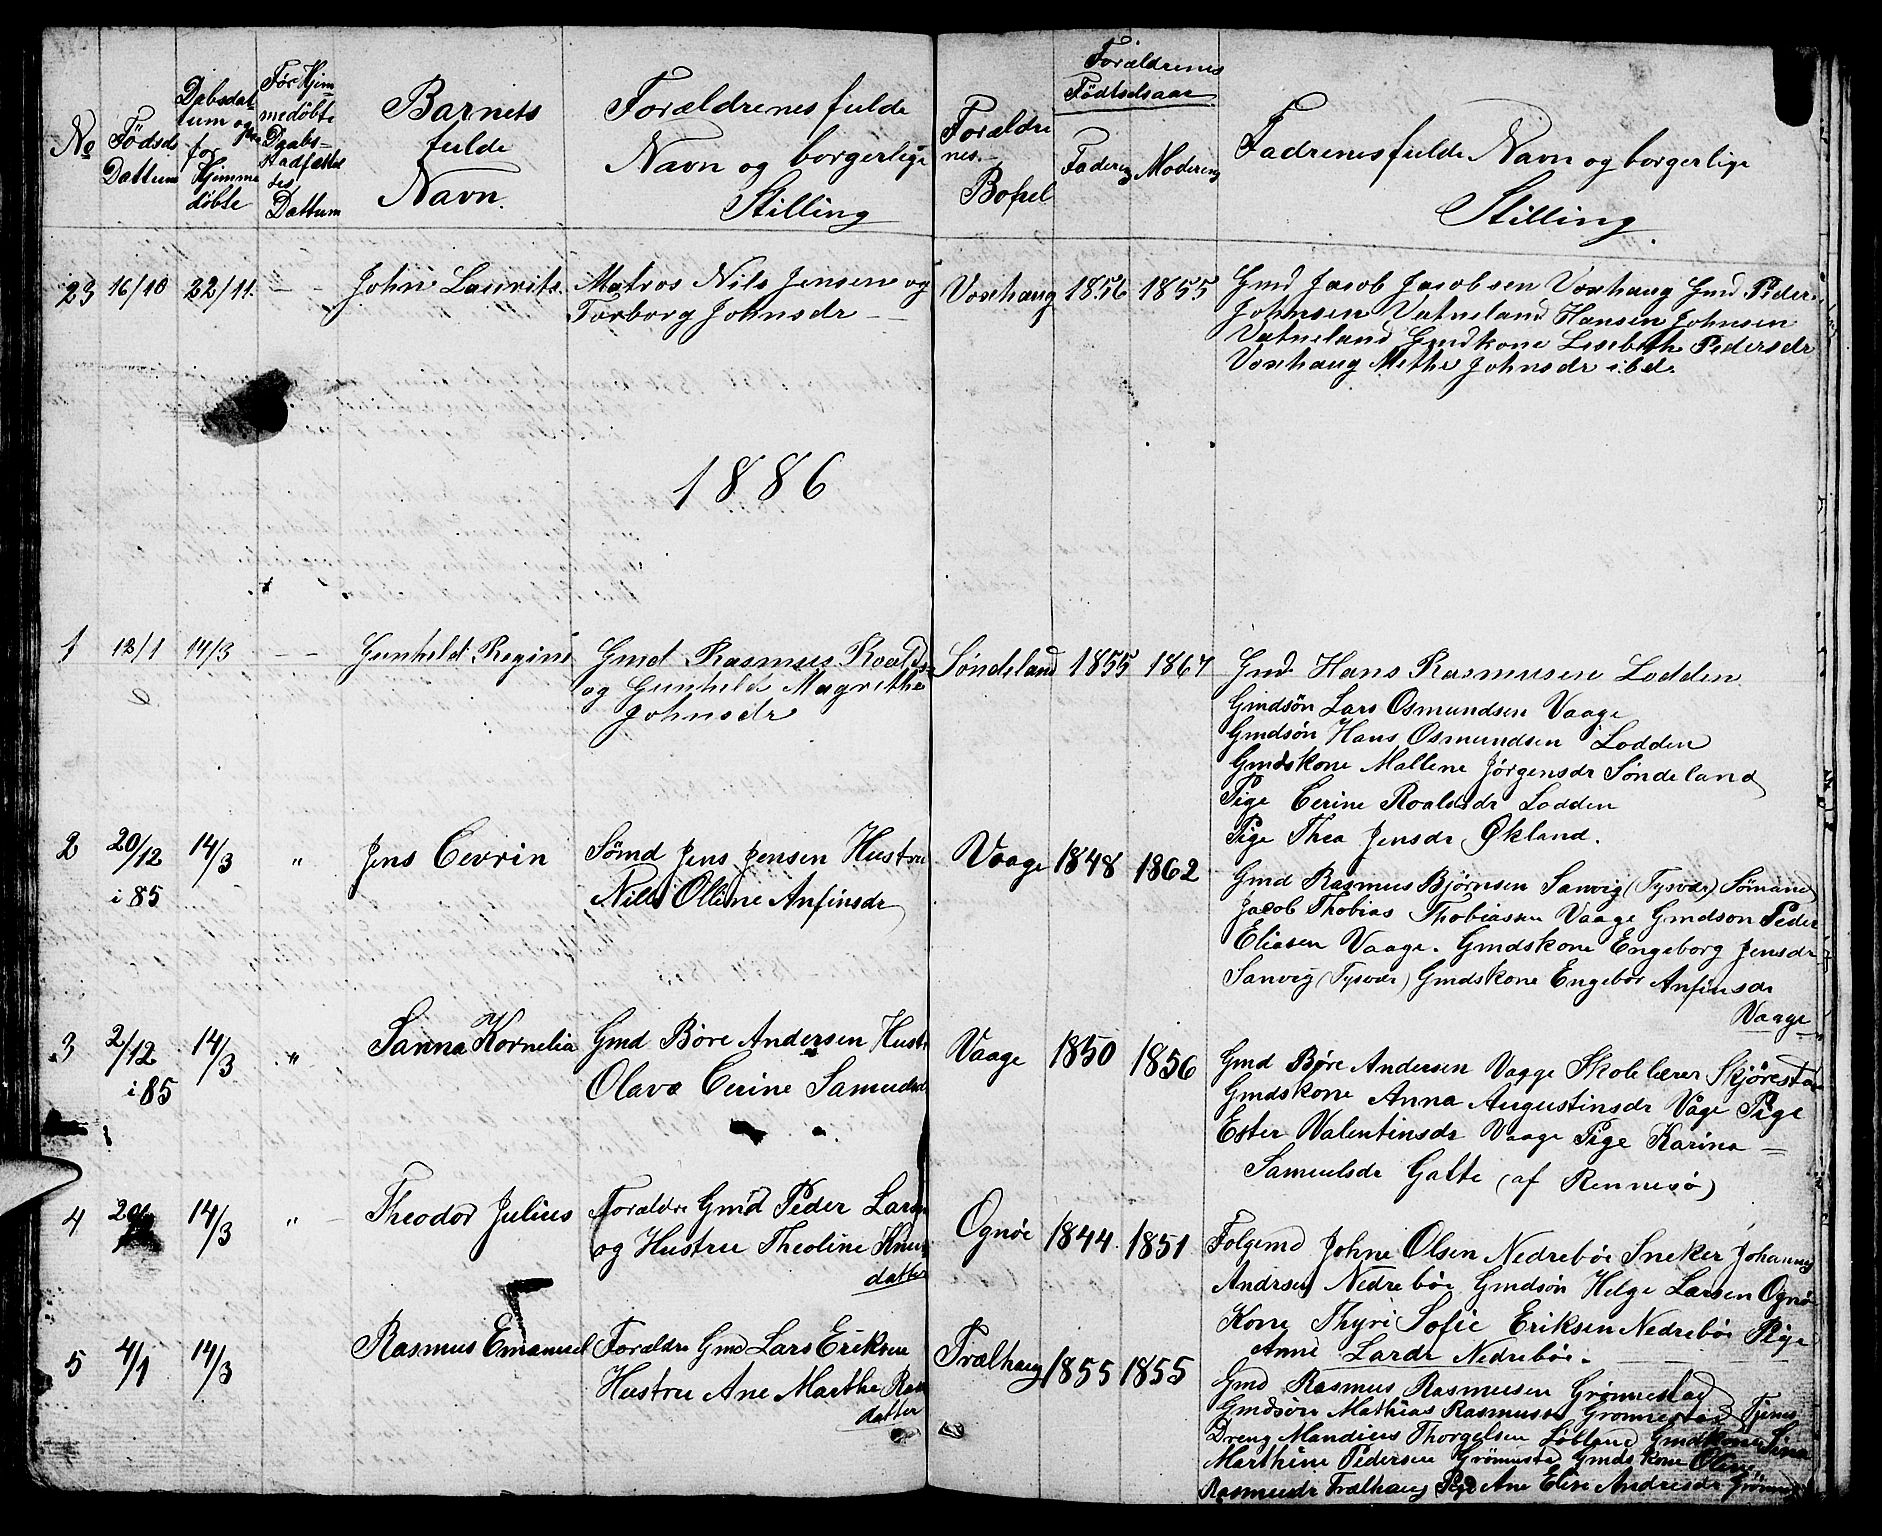 No
Födsds
Dattum
Dabsdat
tum og
for
Hjemme
döbte
Før Hjem
medøbte
Daabs-
stadfæstel
ses
Dattum
Barnets
fulde
Navn.
Forældrenes fulde
Navn og borgerlige
Stilling
Forældre
nes
Bopel
Forældrenes
Födselsaar
Faderens Moderens
Fadrenes fulde Navn og borgerlige
Stilling
23 16/10 22/11. " - John Laurits. Matros Nils Jensen og
Torborg Johnsdr
Voxhaug 1856 1855
Gmd Jacob Jacobsen Voxhaug Gmd Peder
Johnsen Vatneland Hansen Johnsen
Vatneland Gmdkone Lisebeth Pedersdr
Voxhaug Methe Johnsdr ibd.
1886
1 12/1 14/3 - - Gunheld Regine Gmd Rasmus Roalds
og Gunheld Magrethe
Johnsdr
Søndeland 1855 1867
Gmd Hans Rasmussen Lodden
Gmdsön Lars Osmundsen Vaage
Gmdsön Hans Osmundsen Lodden
Gmdskone Mallene Jörgensdr Søndeland
Pige Cerine Roaldsdr Lodden
Pige Thea Jensdr Økland.
2 20/12 14/3 " Jens Cevrin Sømd Jens Jensen Hustru
i 85
Nille Olline Anfinsdr
Vaage 1848 1862
Gmd Rasmus Bjørnsen Sanvig (Tysvær) Sømand
Jacob Thobias Thobiasen Vaage Gmdson Peder
Eliasen Vaage. Gmdskone Engeborg Jensdr
Sanvig (Tysvær) Gmdskone Engebor Anfinsdr
Vaage
3 2/12 14/3 " Sanna Kornelia Gmd Böre Andersen Hustr
i 85
Olava Cerine Samuelsd
Vaage 1850 1856
Gmd Børe Andersen Vagge Skolelærer Skjøresta
Gmdskone Anna Augustinsdr Våge Pige
Ester Valentinsdr Vaage Pige Karina
Samuelsdr Galte (af Rennesö)
4 14/3 " Theodor Julius Forældre Gmd Peder Larsen
og Hustru Theoline Knuds
datter
Ognöe 1844 1851
Folgemd Johne Olsen Nedrebőe Sneker Johannes
Andrsen Nedrebőe Gmdsön Helge Larsen Ognö
Kone Thyri Sofie Eriksen Nedrebőe Pige
Anne Larsdr Nedrebőe.
5 4/1 14/3 Rasmus Emanuel Forældre Gmd Lars Eriksen
Hustru Ane Marthe Ras
datter
Frælhaug 1855 1855
Gmd Rasmus Rasmusen Grønnestad
Gmdsön Mathias Rasmusen Grønnestad Tjenes
Dreng Mandius Thorgelsen Løbland Gmdkone Sina
Marthine Pedersen Grønnesta Gmdskone Oline
Rasmusdr Frælhaug Pige Ane Elise Andresdr Grønnes